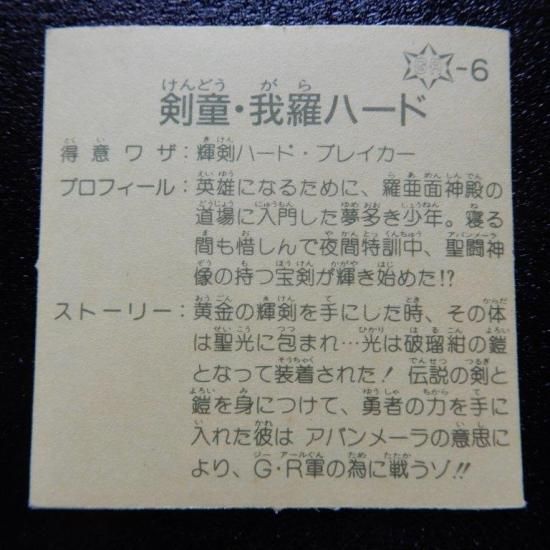 -6
剣童・我羅ハード
得意ワザ:輝剣ハード・ブレイカー
プロフィール:英雄になるために、羅亜面神殿の
道場に入門した夢多き少年。寝る
間も惜しんで夜間特訓中、聖闘神
像の持つ宝剣が輝き始めた!?
ストーリー:黄金の輝剣を手にした時、その体
は聖光に包まれ…光は破瑠紺の鎧
となって装着された!伝説の剣と
鎧を身につけて、勇者の力を手に
入れた彼は アバンメーラの意思に
より、G・R軍の為に戦うゾ!!